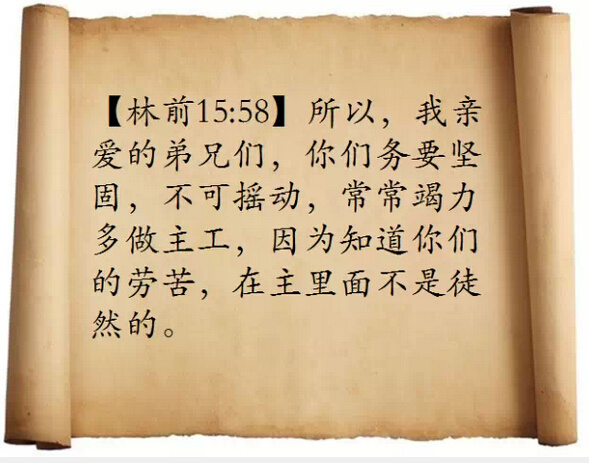 【林前15:58】所以，我亲
爱的弟兄们，你们务要坚
固，不可摇动，常常竭力
多做主工，因为知道你们
的劳苦，在主里面不是徒
然的。